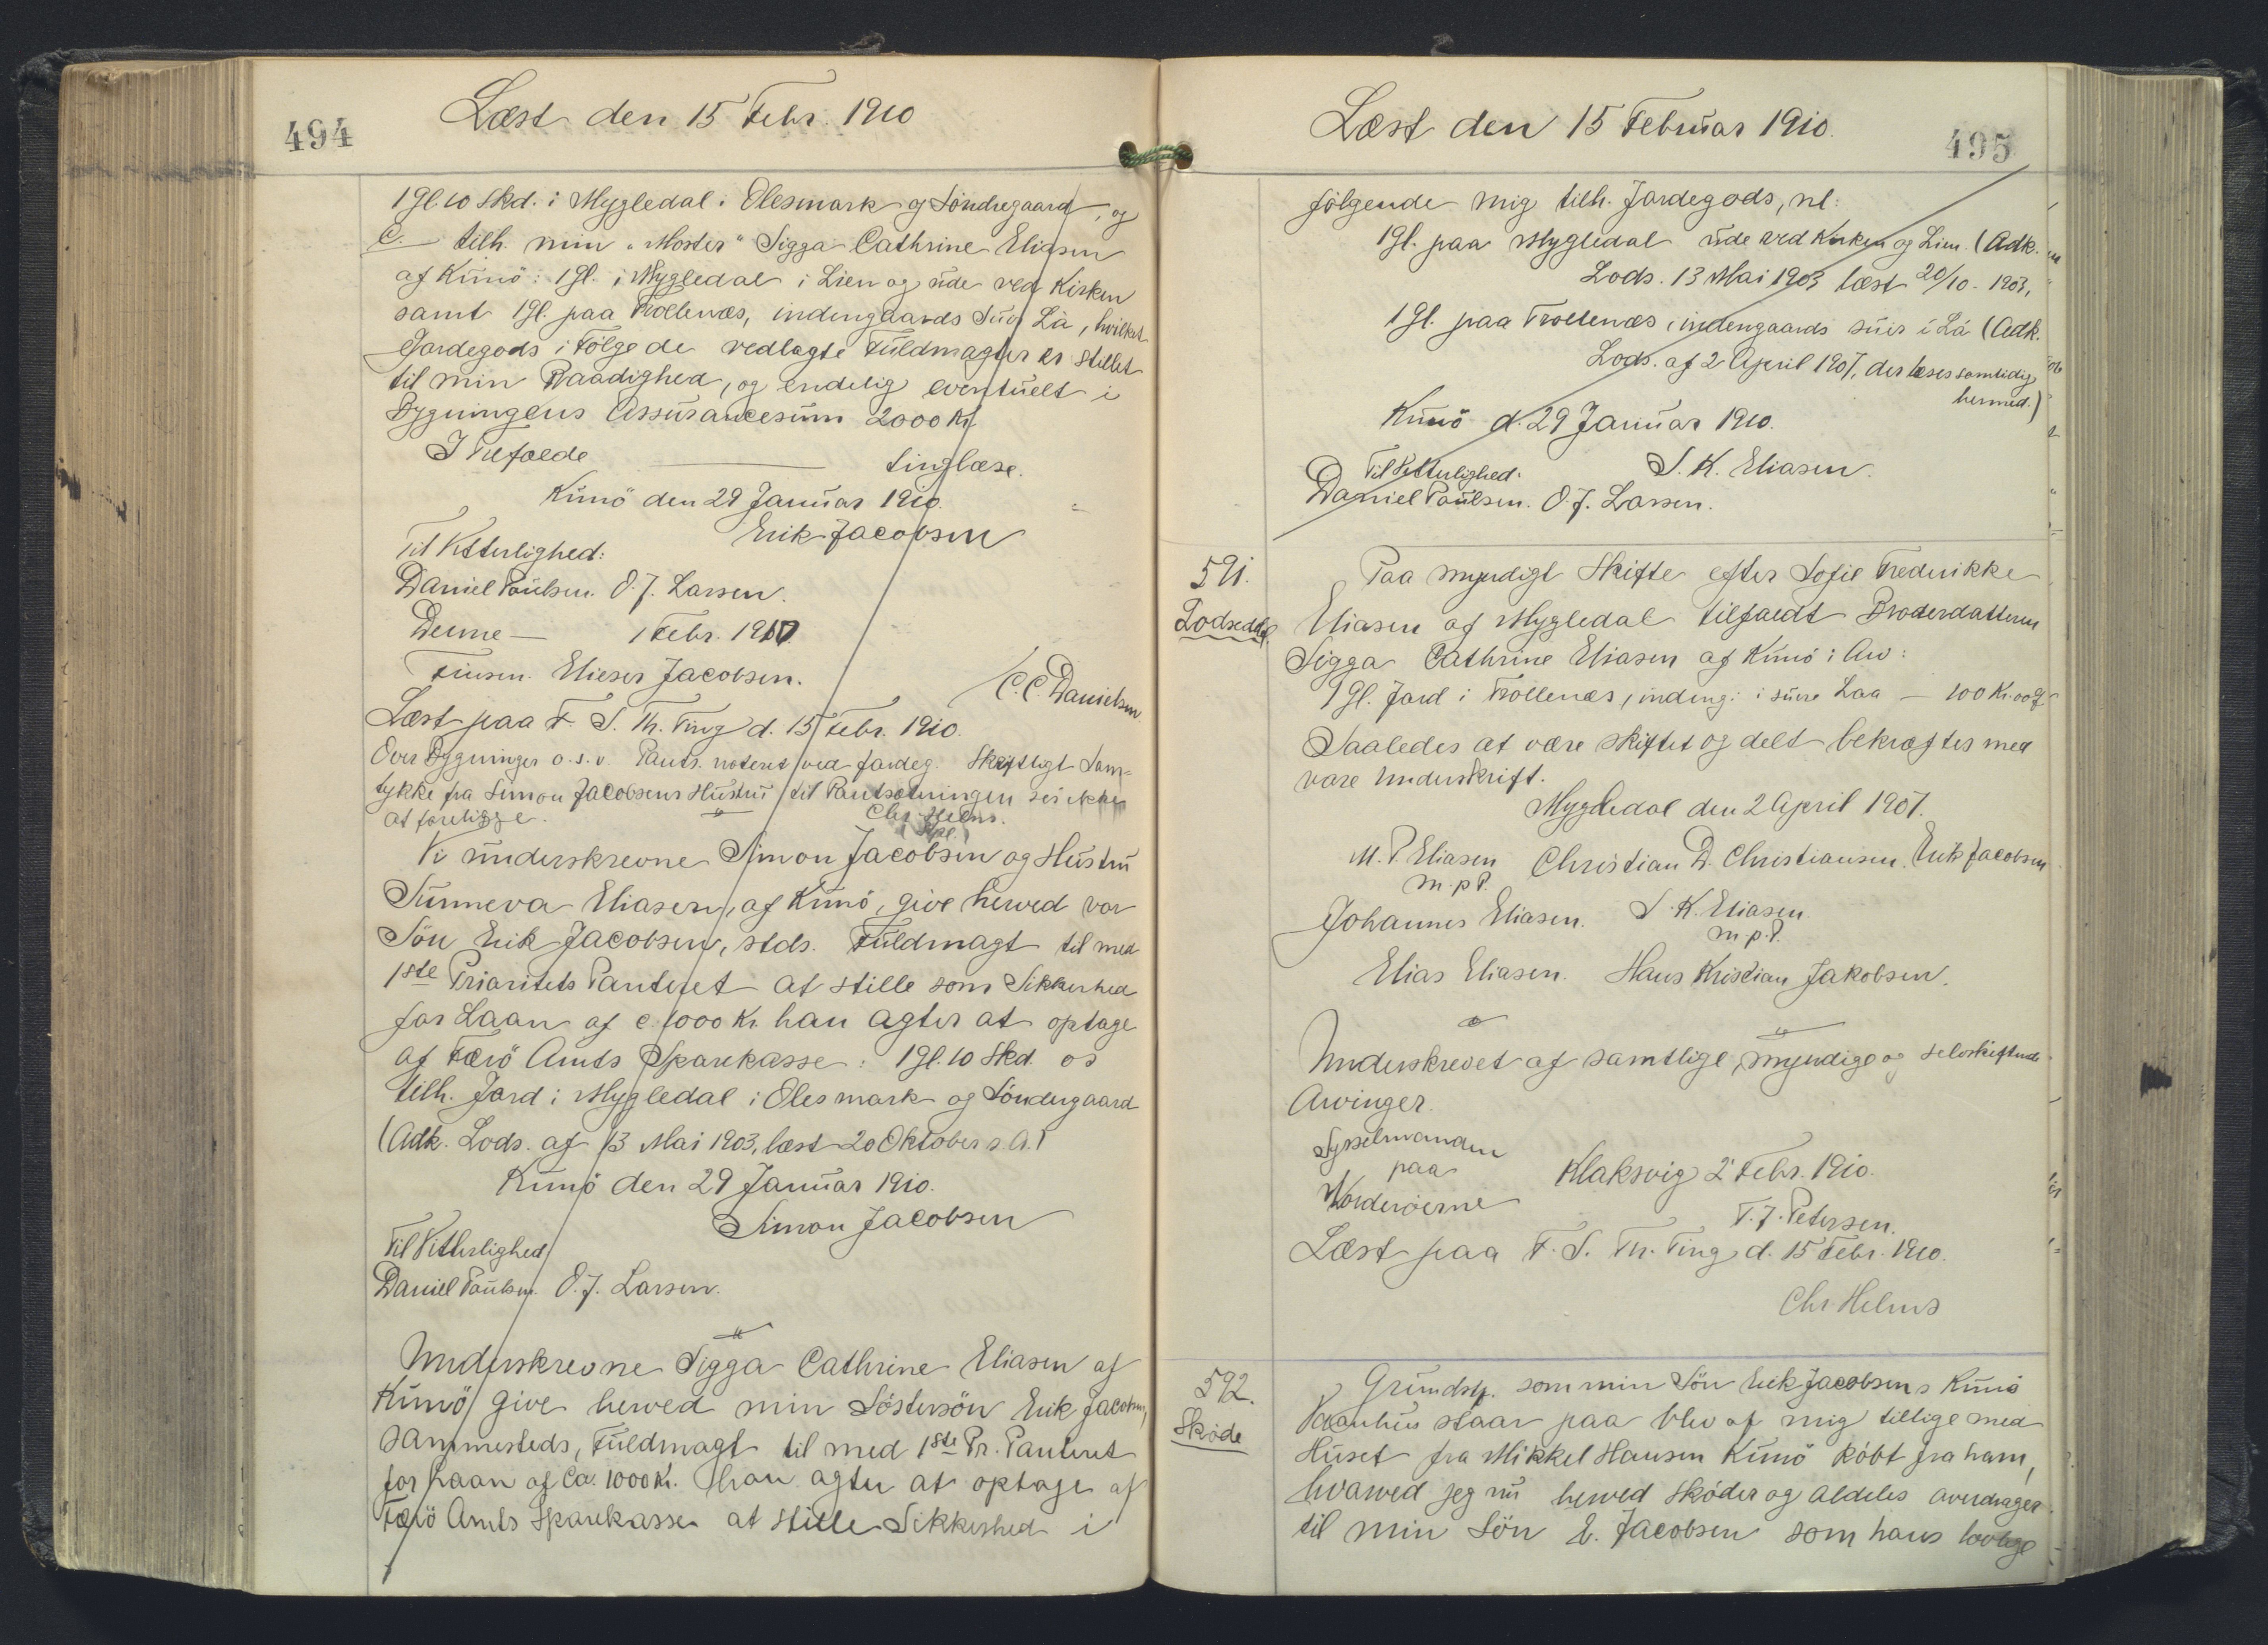 494
Læst den 15 Febr. 1910
1 Gl. 10 Skd. i Mygledal i Olesmark og Söndregaard, og
C. tilh. min "Moster" Sigga Cathrine Eliasen
af Kunö: 1 Gl. i Mygledal i Lien og ude ved Kirken
samt 1 Gl. paa Trollenæs, indengaards Suur Lá, hvilket
Jordegods i Følge de vedlagte Fuldmagter er stillet
til min Raadighed, og endelig eventuelt i
Bygningens Assurancesum 2000 Kr.
I Tilfælde ——— tinglæse.
Kunö den 29 Januar 1910.
Erik Jacobsen
Til Vitterlighed:
Daniel Poulsen. O. J. Larsen.
Denne — 1 Febr. 1910.
Finsen. Elieser Jacobsen.
C. C. Danielsen
Læst paa F. S. Th. Ting d. 15 Febr. 1910.
Over Bygninger o. s. v. Pantr. noteret ved Jordeg. Skriftligt Sam-
tykke fra Simon Jacobsens Hustru til Pantsætningen ses ikke
at foreligge.
Chr Helms.
Vi underskrevne Simon Jacobsen og Hustru
Sunneva Eliasen, af Kunö, give herved vor
Sön Erik Jacobsen, stds. Fuldmagt til med
1ste Prioritets Panteret at stille som Sikkerhed
for Laan af c 1000 Kr. han agter at optage
af Færö Amts Sparekasse: 1 Gl. 10 Skd. os
tilh. Jord i Mygledal i Olesmark og Söndergaard
(Adk. Lods. af 13 Mai 1903, læst 20 Oktober s. A.)
Kunö den 29 Januar 1910.
Simon Jacobsen
Til Vitterlighed
Daniel Poulsen. O. J. Larsen.
Underskrevne Sigga Cathrine Eliasen af
Kunö give herved min Söstersön Erik Jacobsen,
sammesteds, Fuldmagt til med 1ste Pr. Panteret
for Laan af Ca. 1000 Kr. han agter at optage af
Færö Amts Sparekasse at stille Sikkerhed i
Læst den 15 Februar 1910.
495
fölgende mig tilh. Jordegods, nl:
1 Gl. paa Mygledal ude ved Kirken og Lien. (Adk.
Lods. 13 Mai 1903 læst 20/10. 1903,
1 Gl. paa Trollenæs, indengaards suur i Lá (Adk.
Lods. af 2 April 1907, der læses samtidig
hermed.)
Kunö d. 29 Januar 1910.
S. K. Eliasen.
Til Vitterlighed:
Daniel Poulsen. O. J. Larsen.
591.
Lodseddel
Paa myndigt Skifte efter Sofie Frederikke
Eliasen af Mygledal tilfaldt Broderdatteren
Sigga Cathrine Eliasen af Kunö i Arv:
1 Gl. Jord i Trollenæs, indeng: i suure Laa — 100 Kr. 00 Ø
Saaledes at være skiftet og delt bekræftes med
vore Underskrift.
Mygledal den 2 April 1907.
M. P. Eliasen Christian D. Christiansen. Erik Jacobsen
m. p. P.
Johannes Eliasen. S. K. Eliasen.
m. p. P.
Elias Eliasen. Hans Kristian Jakobsen.
Underskrevet af samtlige, myndige og selvskiftende
Arvinger.
Sysselmanden
paa
Norderöerne
Klaksvig 2 Febr. 1910.
T. J. Petersen.
Læst paa F. S. Th. Ting d. 15 Febr. 1910.
Chr Helms
592.
Sköde
Grundst. som min Sön Erik Jacobsens Kunö
Vaanhus staar paa blev af mig tillige med
Huset fra Mikkel Hansen Kunö köbt fra ham,
hvorved jeg nu herved sköder og aldeles overdrager
til min Sön E. Jacobsen som hans lovlige